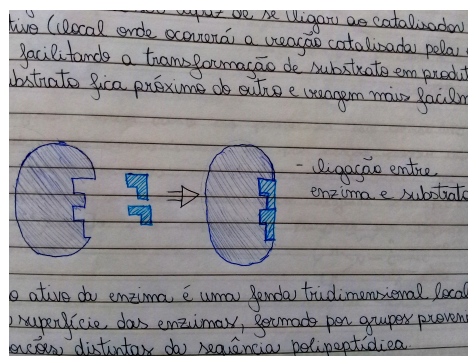 capaz de se ligar ao catalisador
tivo (local onde ocorrerá a reação catalisada pela
facilitando a transformação de substrato em produt
ubstrato fica próximo do outro e reagem mais facilm
- ligação entre
enzima e substrato
o ativo da enzima é uma fenda tridimensional local
superfície das enzimas, formado por grupos proveni
porções distintas da sequência polipeptídica.